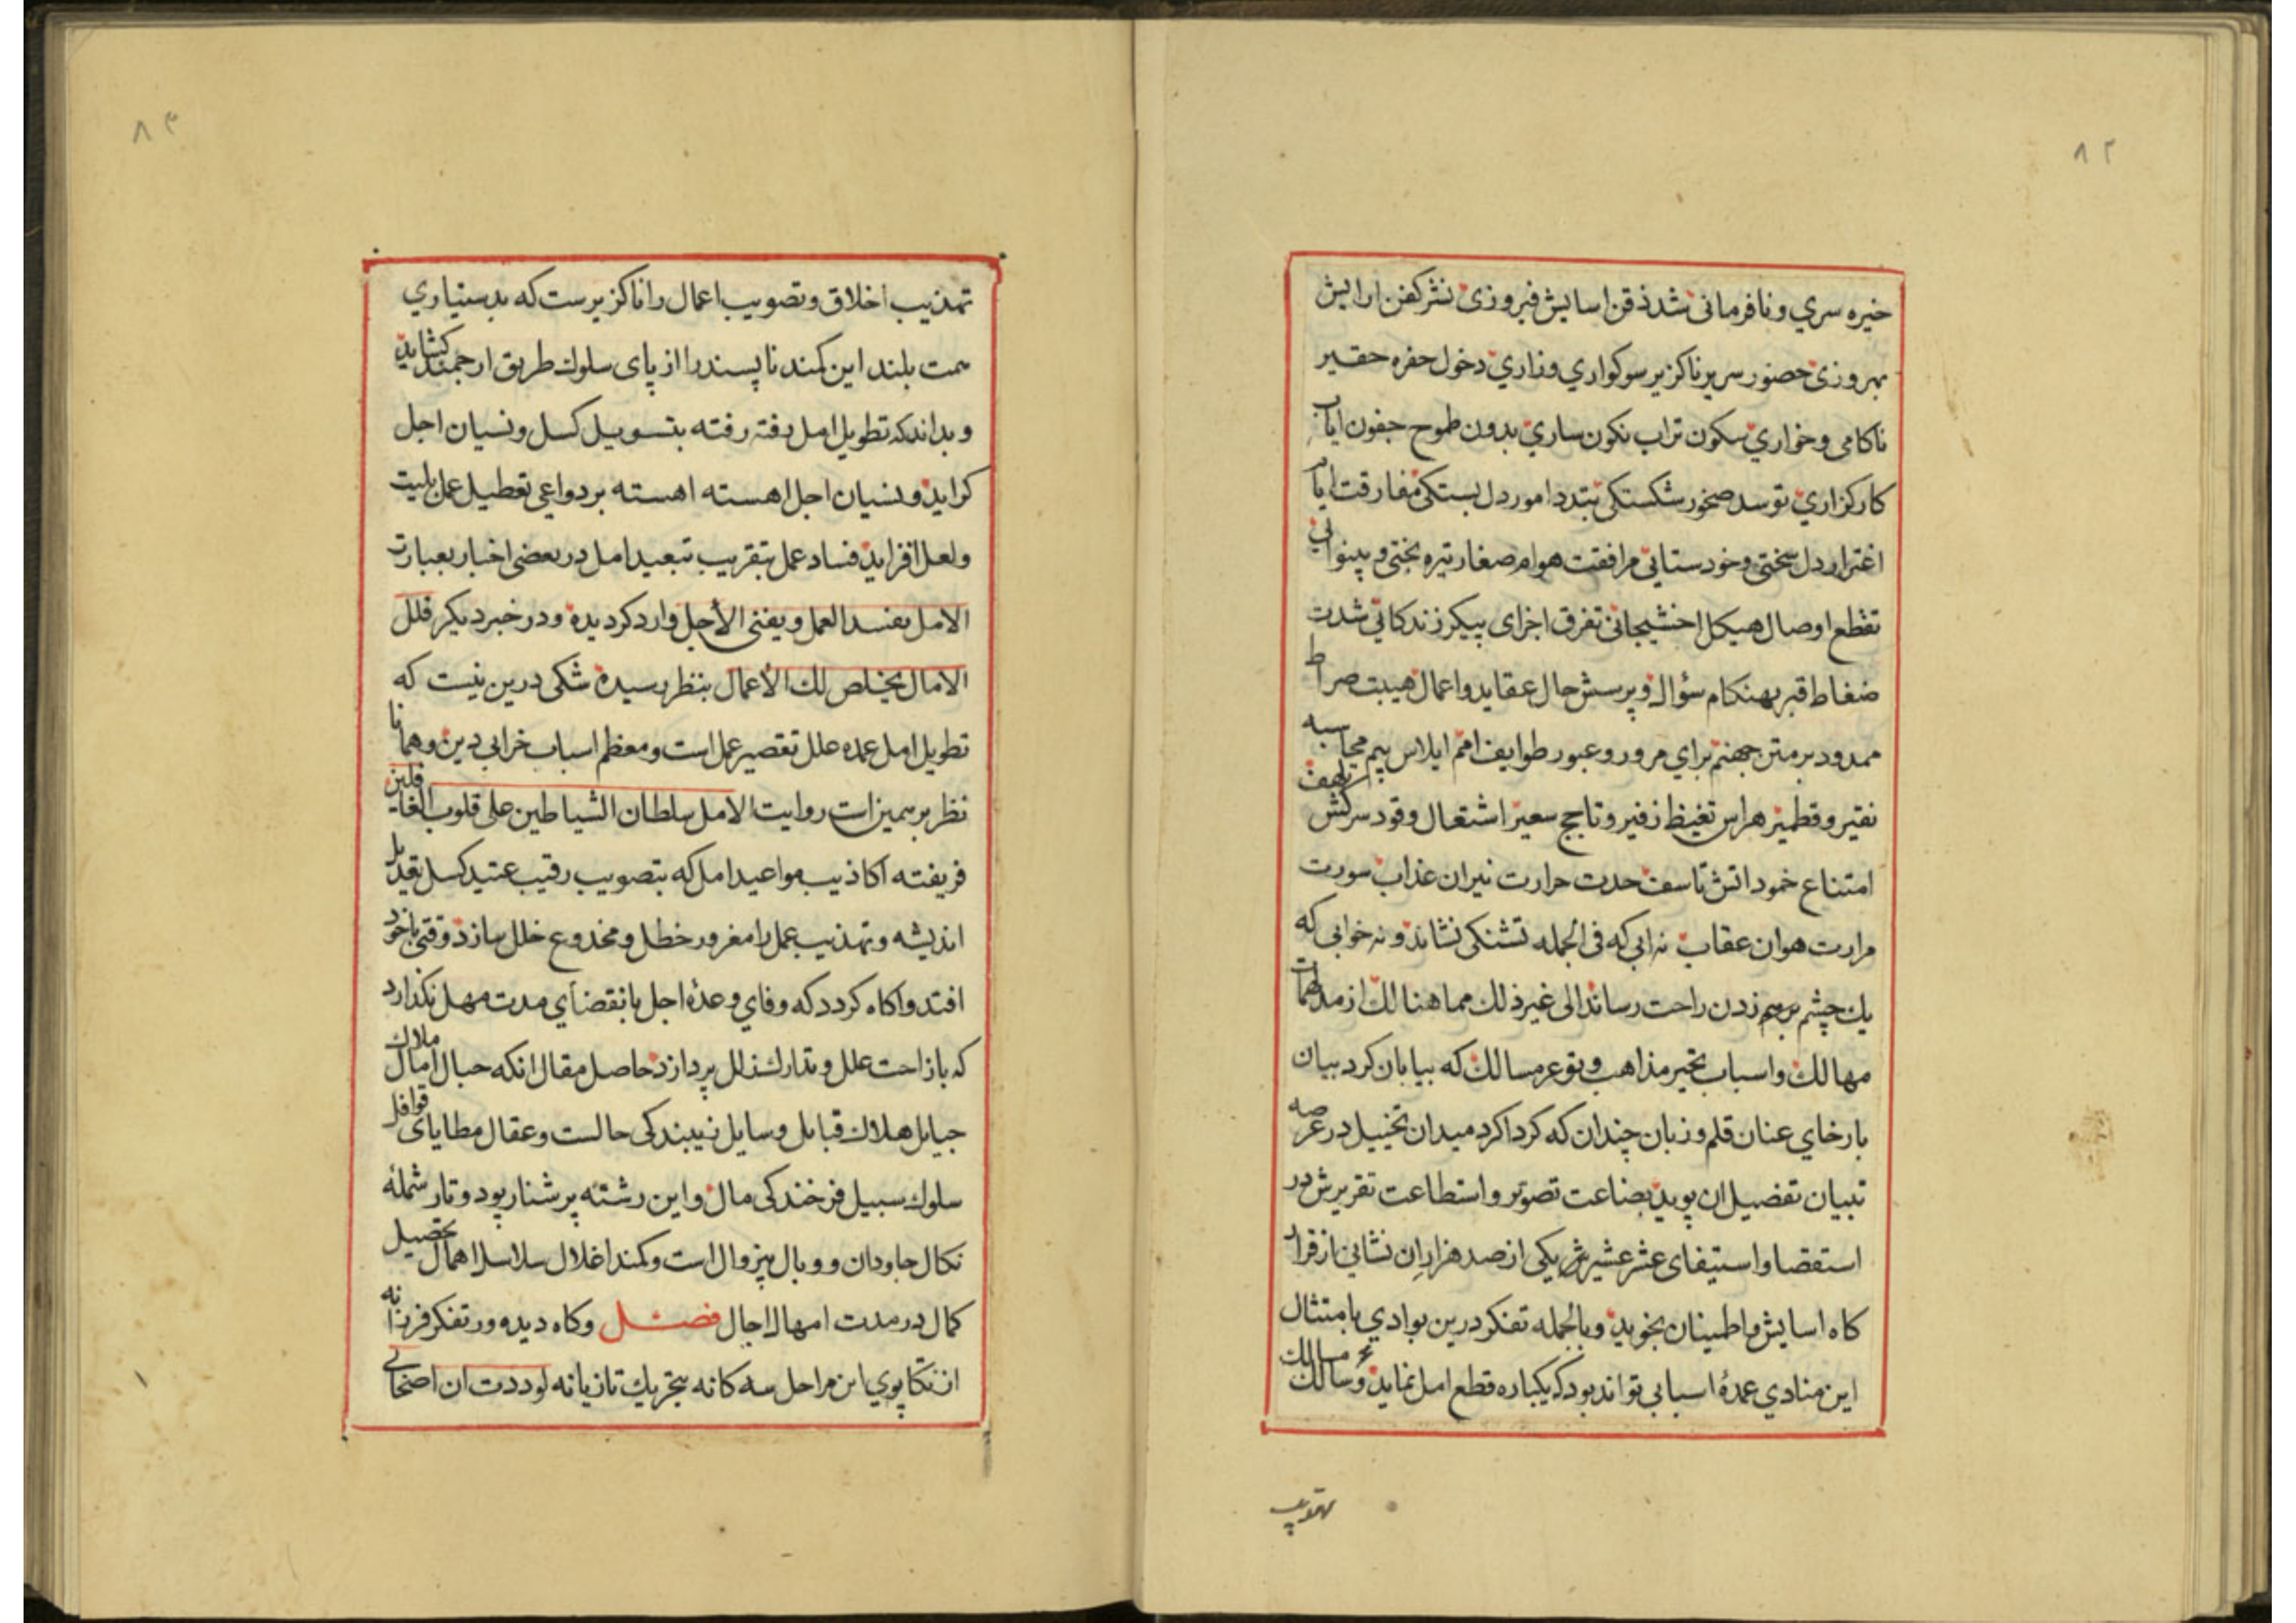 ۸۲
خیره سري و نافرمانی شد ذقن اسایش فیروزی نشر کفن ارایش
بهروزی حضور سریر ناکزیر سوکواري وزاري دخول حفره حقیر
ناکامی وخواري سکون تراب نکون ساري بدون طموح جفون ایاب
کارکزاري توسد صخور شکستکی تبدد امور دل بستکی مفارقت ایام
اغترار دل سختی وخودستایی مرافقت هوام صغار تیره بختی و بینوایی
تقطع اوصال هیکل اخشیجانی تفرق اجزای پیکر زندکانی شدت
ضغاط قبر بهنکام سؤال و پرسش حال عقاید واعمال هیبت صراط
ممدود بر متن جهنم براي مرور وعبور طوایف امم ابلاس بیم محاسبه
نقیر و قطمیر هراس تغیظ زفیر و تاجج سعیر اشتعال وقود سرکش تلهف
امتناع خمود اتش تاسف حدت حرارت نیران عذاب سورت
مرارت هوان عقاب نه ابی که فی الجمله تشنکی نشاند و نه خوابی که
یك چشم برهم زدن راحت رساند الی غیر ذلك مما هنالك از مدلهمات
مهالك واسباب تحیر مذاهب و توعر مسالك که بیابان کرد بیان
بارخاي عنان قلم و زبان چندان که کرداکرد میدان تخییل در عرصه
تبیان تفضیل ان پوید بضاعت تصویر و استطاعت تقریرش در
استقصا واستیفای عشر عشیرش یکی از صد هزاران نشانی از قرار
کاه اسایش و اطمینان بخوید و بالجمله تفکر درین بوادي بامتثال
این منادي عمدهٔ اسبابی تواند بود که یکباره قطع امل نماید و سالك مسالك
تهذیب
۸۳
تهذیب اخلاق و تصویب اعمال را ناکزیرست که بدستیاري
همت بلند این کمند ناپسند را از پای سلوك طریق ارجمند کشاید
و بداند که تطویل امل رفته رفته بتسویل کسل و نسیان اجل
کراید و نسیان اجل اهسته اهسته بر دواعی تعطیل عمل بلیت
ولعل افزاید فساد عمل بتقریب تبعید امل در بعضی اخبار بعبارت
الامل یفسد العمل ویفنی الأجل وارد کردیده و در خبر دیکر قلل
الامال یخلص لك الأعمال بنظر رسیده شکی درین نیست که
تطویل امل عمده علل تقصیر عمل است ومعظم اسباب خرابی دین وهمانا
نظر بر همین است روایت الامل سلطان الشیاطین علی قلوب الغافلین
فریفته اکاذیب مواعید امل که بتصویب رقیب عتید کسل تعدیل
اندیشه و تهذیب عمل را مغرور خطل و مخدوع خلل سازد وقتی باخود
افتد واکاه کردد که وفاي وعدهٔ اجل بانقضاي مدت مهل نکذارد
که بازاحت علل و تدارك زلل پردازد حاصل مقال انکه حبال امال ملاك
حبایل هلاك قبایل وسایل زیبندکی حالست وعقال مطایای قوافل
سلوك سبیل فرخندکی مال و این رشته پر شنار پود و تار شملهٔ
نکال جاودان و وبال بیزوال است وکمند اغلال سلاسل اهمال تحصیل
کمال در مدت امهال اجال فصل وکاه دیده ور تفکر فرزانه
از تکاپوي این مراحل سه کانه بتحریك تازیانه لوددت ان اصحابی